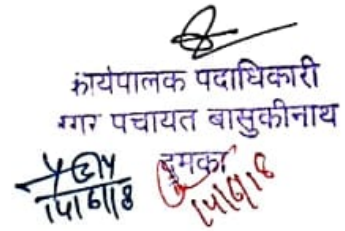 कार्यपालक पदाधिकारी
नगर पंचायत बासुकीनाथ
दुमका
14/6/18 14/6/18